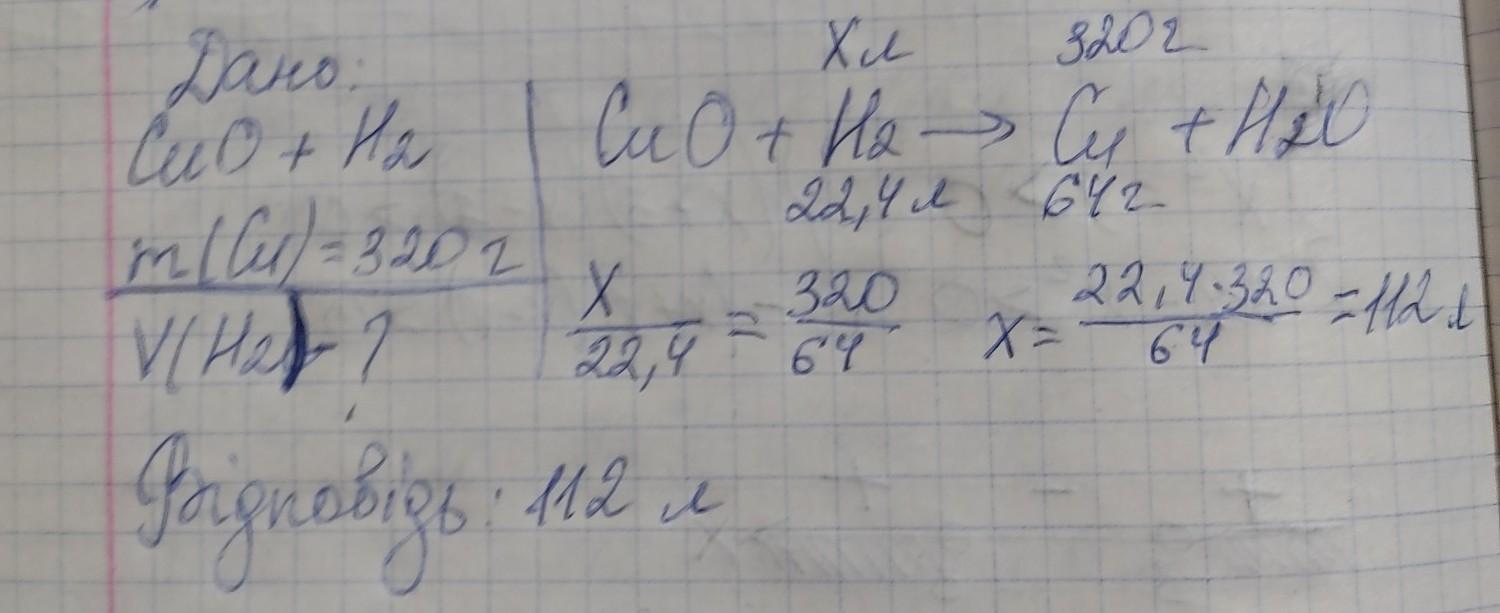 Дано:
CuO + H2
m(Cu) = 320 г
V(H2) - ?
X л 320 г
CuO + H2 → Cu + H2O
22,4 л 64 г
X/22,4 = 320/64 X = 22,4·320/64 = 112 л
Відповідь: 112 л